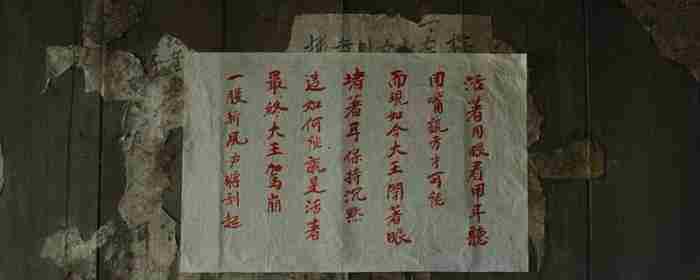 活著用眼看用耳聽
用嘴說方才可能
而現如今大王閉著眼
堵著耳保持沉默
這如何能說是活著
最終大王駕崩
一股新風即將刮起